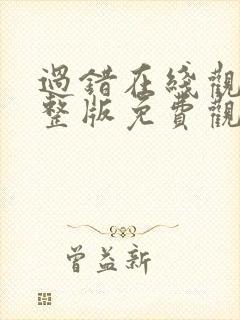 過錯在綫觀
整版免費觀
曾益新